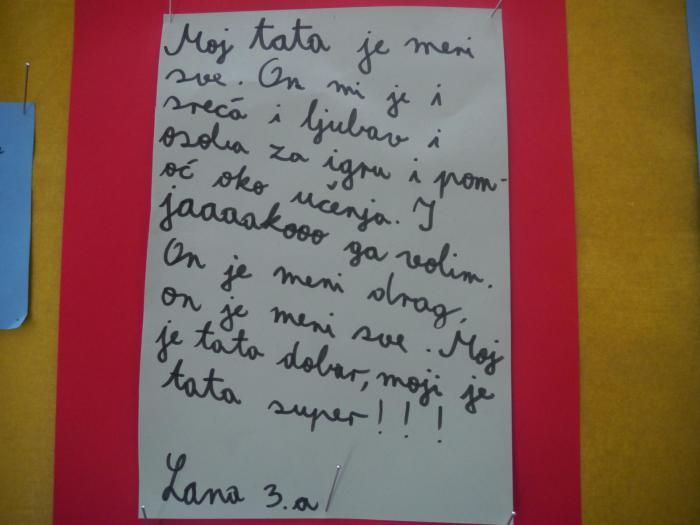 Moj tata je meni
sve. On mi je i
sreća i ljubav i
osoba za igru i pom-
oć oko učenja. I
jaaaakooo ga volim.
On je meni drag,
on je meni sve. Moj
je tata dobar, moji je
tata super!!!
Lana 3.a